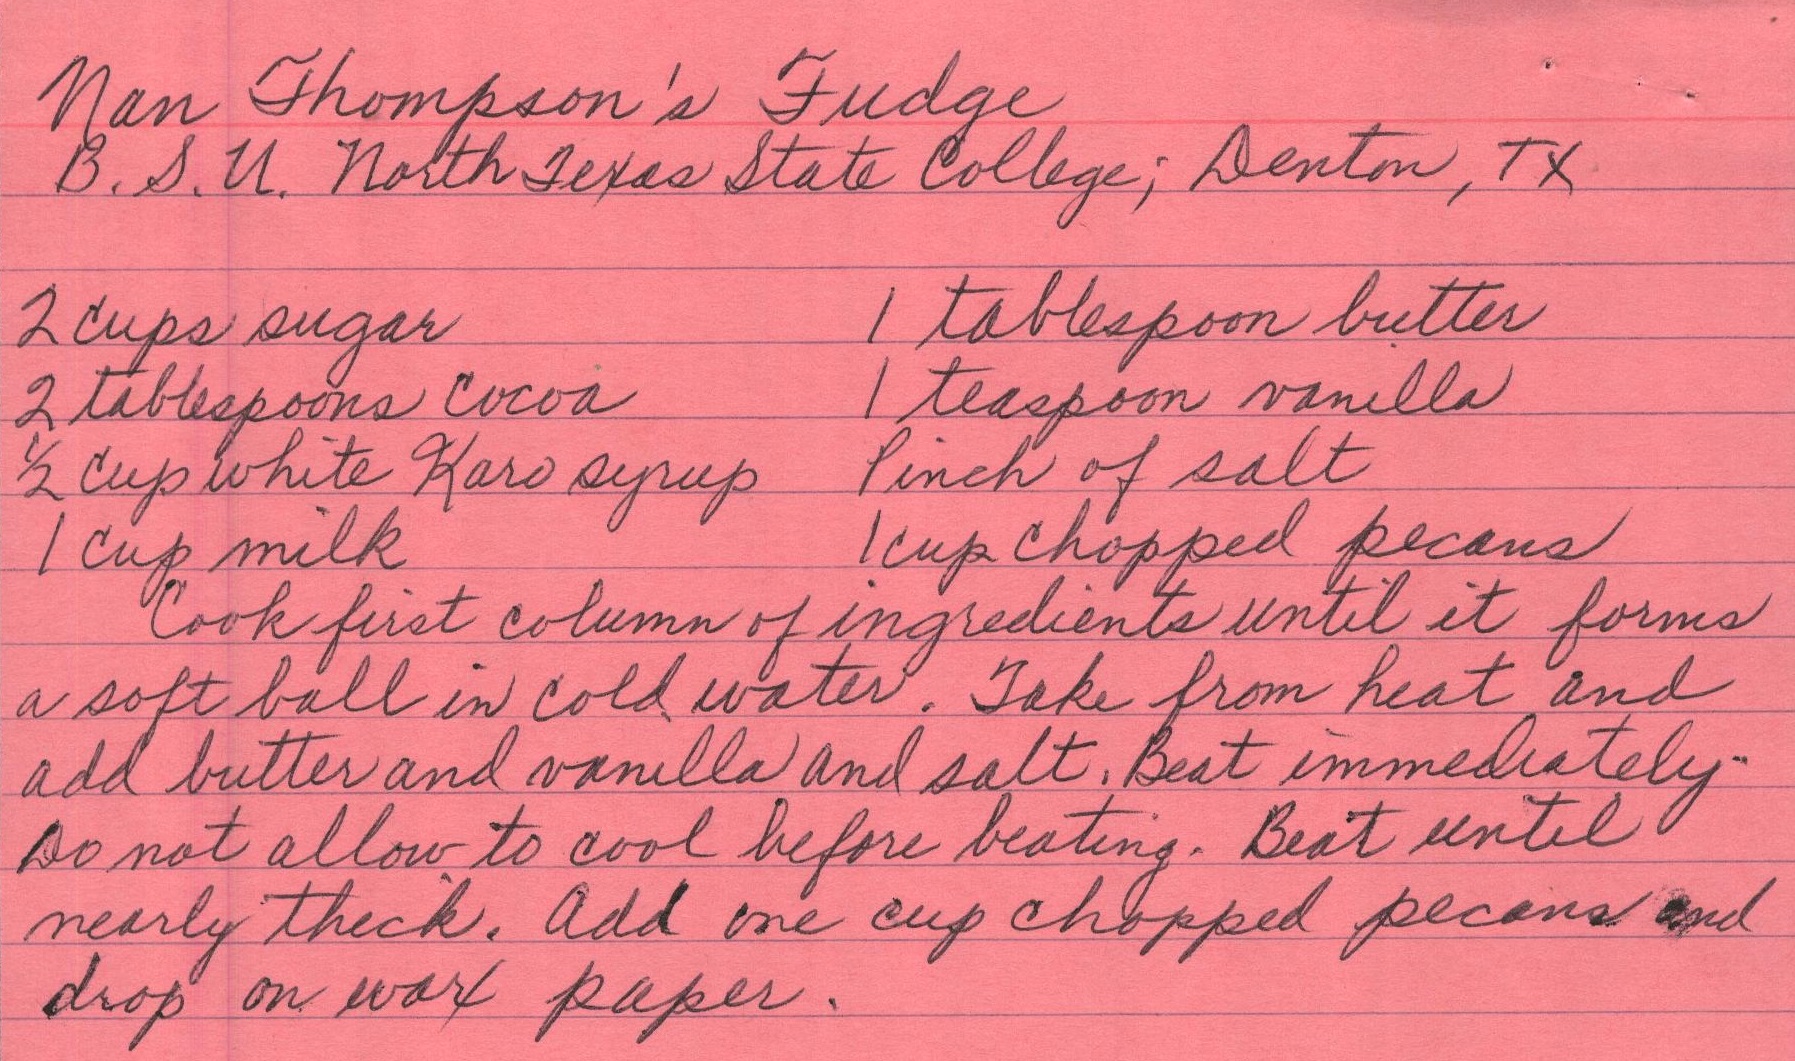 Nan Thompson's Fudge
B. S. U. North Texas State College; Denton, TX
2 cups sugar
2 tablespoons cocoa
½ cup white Karo syrup
1 cup milk
1 tablespoon butter
1 teaspoon vanilla
Pinch of salt
1 cup chopped pecans
Cook first column of ingredients until it forms
a soft ball in cold water. Take from heat and
add butter and vanilla and salt. Beat immediately.
Do not allow to cool before beating. Beat until
nearly thick. Add one cup chopped pecans and
drop on wax paper.